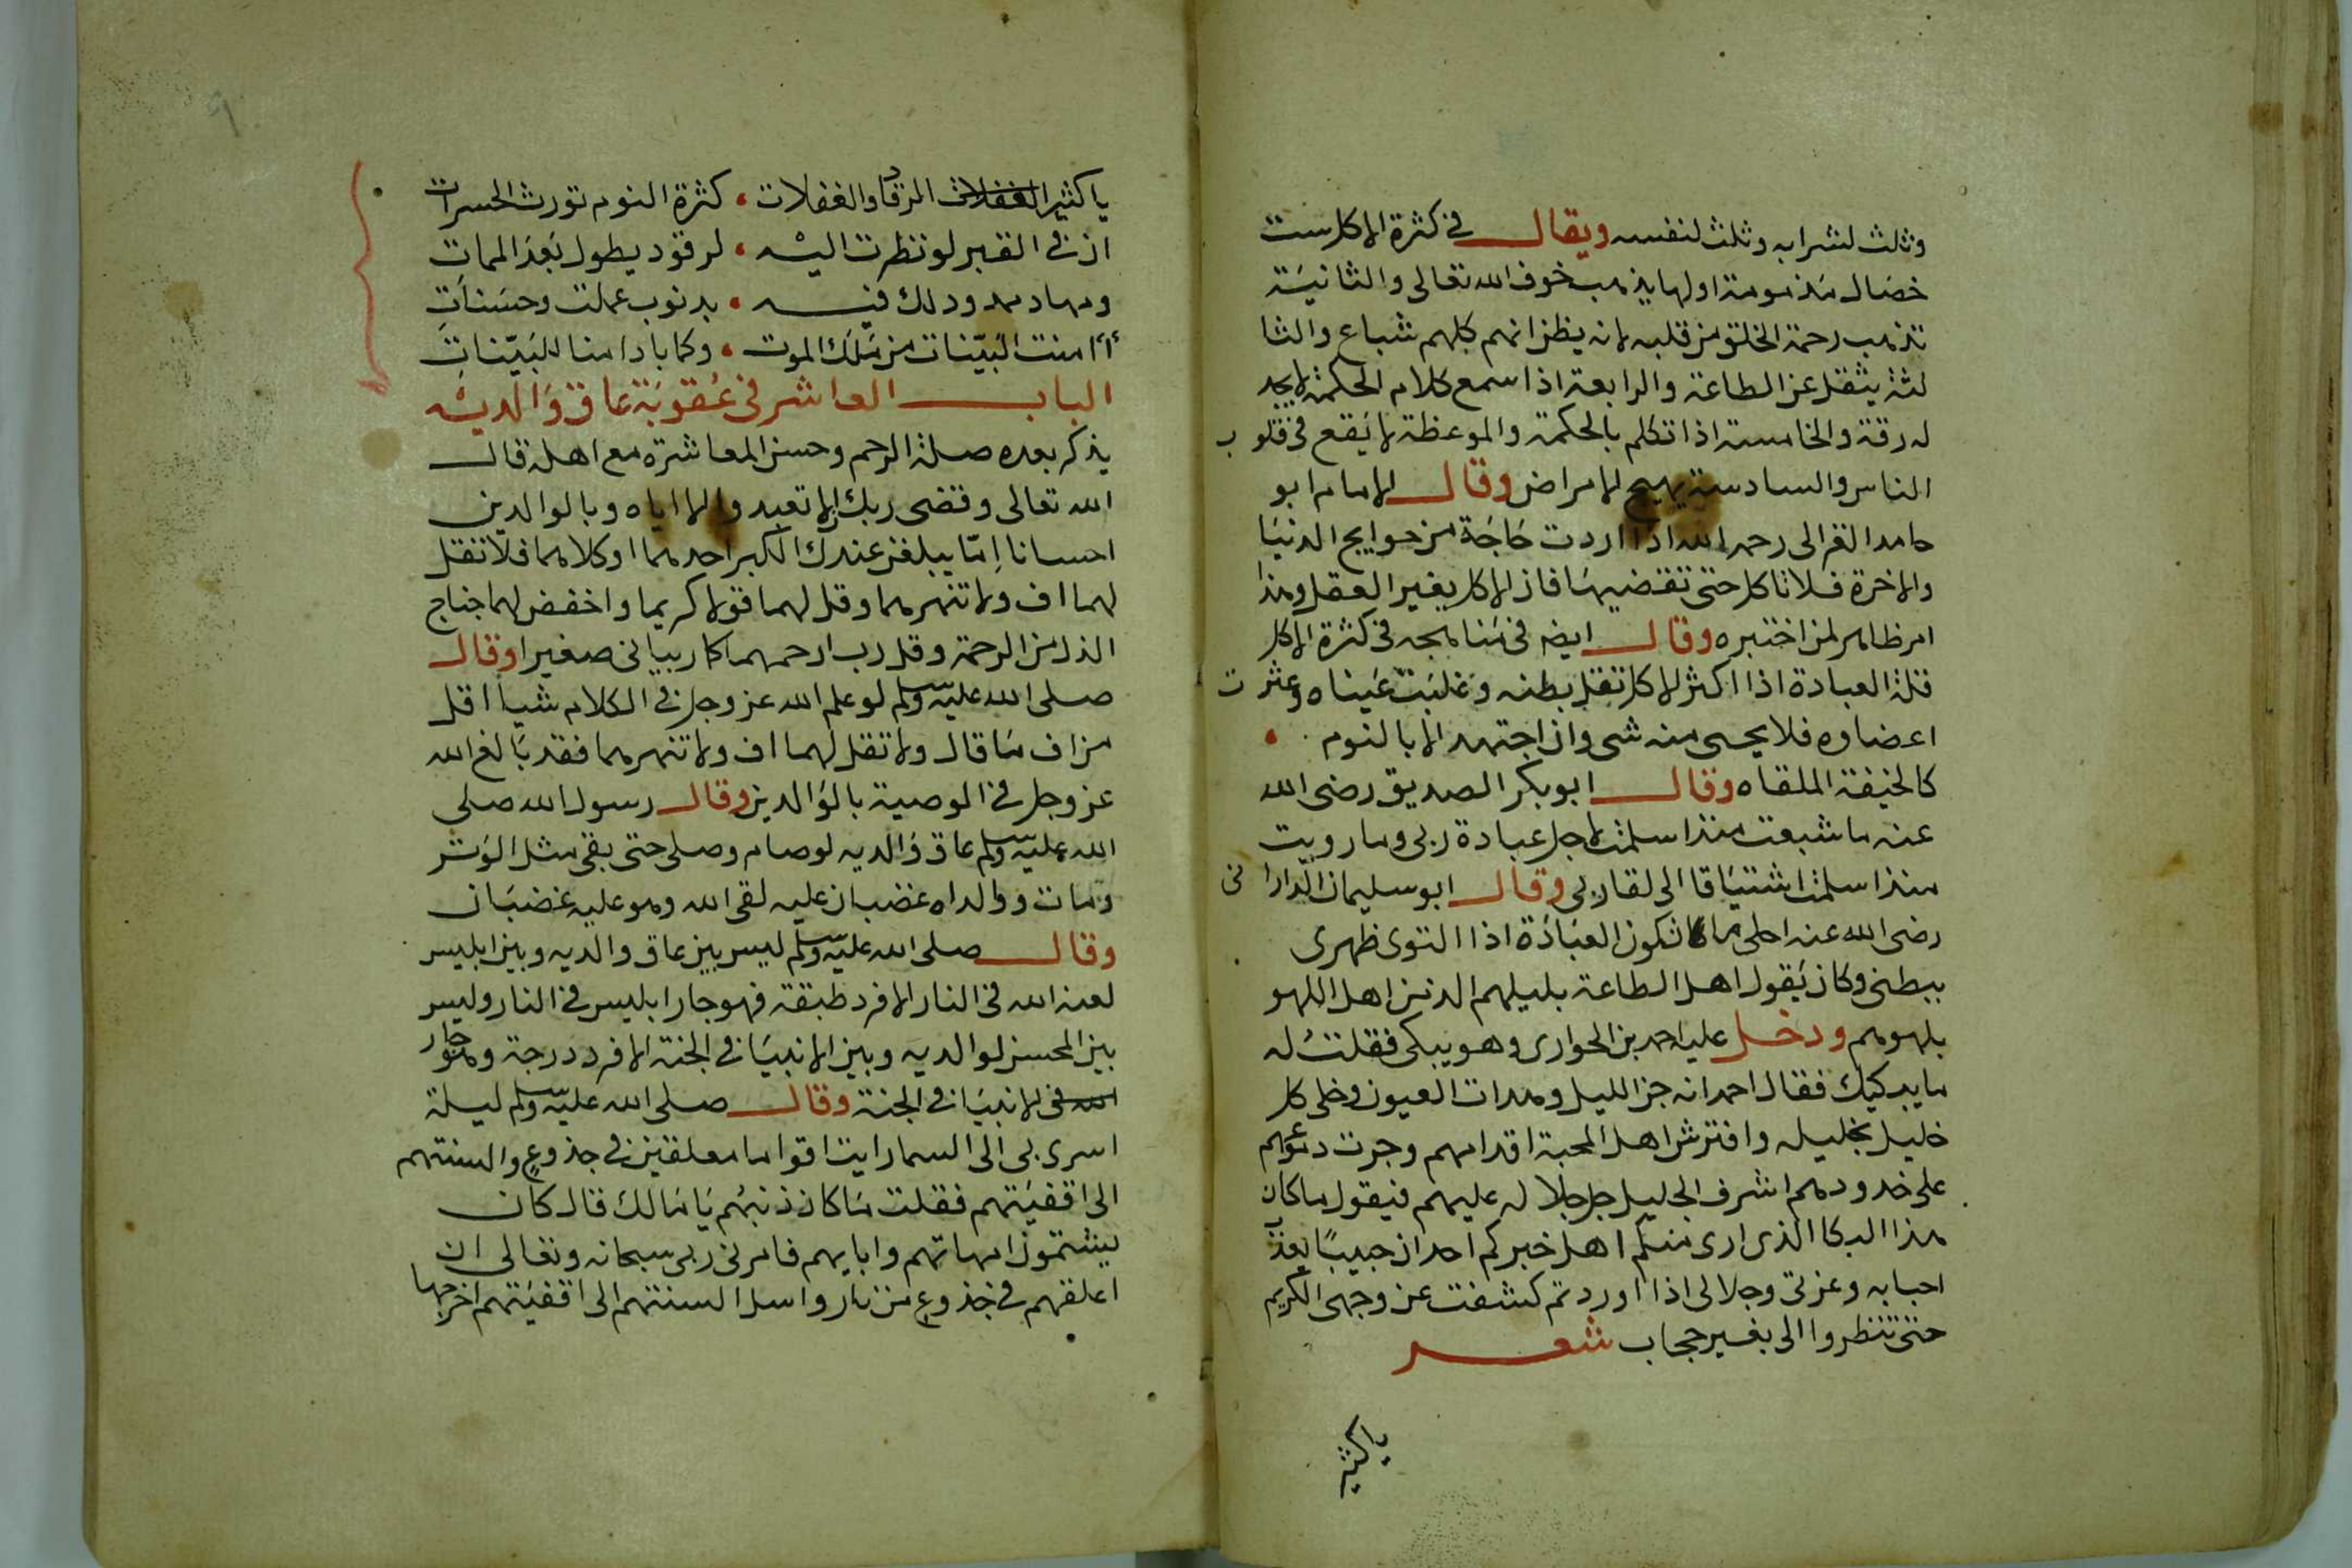 وثلث لشرابه وثلث لنفسه ويقال في كثرة الاكل ست
خصال مذمومة اولها يذهب خوف الله تعالى والثانية
تذهب رحمة الخلق من قلبه لانه يظن انهم كلهم شباع والثا
لثة يثقل عن الطاعة والرابعة اذا سمع كلام الحكمة لا يجد
له رقة والخامسة اذا تكلم بالحكمة والموعظة لا يقع في قلوب
الناس والسادسة يهيج الامراض وقال الامام ابو
حامد الغزالى رحمه الله اذا اردت حاجة من حوايج الدنيا
والاخرة فلا تاكل حتى تقضيها فان الاكل يغير العقل وهذا
امر ظاهر لمن اختبره وقال ايضه في منامجه في كثرة الاكل
قلة العبادة اذا اكثر الاكل تقل بطنه وغلبت عيناه وعثرت
اعضاوه فلا يجى منه شى وان اجتهد الا بالنوم
كالخيفة الملقاه وقال ابو بكر الصديق رضى الله
عنه ما شبعت منذ اسلمت لاجل عبادة ربى وما رويت
منذ اسلمت اشتياقا الى لقا ربى وقال ابو سليمان الدارانى
رضى الله عنه احلى ما تكون العبادة اذا التوى ظهرى
ببطنى وكان يقول اهل الطاعة بليلهم الذ من اهل اللهو
بلهوهم ودخل عليه احمد بن الحوارى وهو يبكى فقلت له
ما يبكيك فقال احمد انه جن الليل وهدات العيون وخلى كل
خليل بخليله وافترش اهل المحبة اقدامهم وجرت دموعهم
على خدودهم اشرف الجليل جل جلاله عليهم فيقول ما كان
هذا البكا الذى ارى منكم اهل خبركم احد ان حبيبا يعذب
احبابه وعزتى وجلالى اذا اوردتم كشفت عن وجهى الكريم
حتى تنظروا الى بغير حجاب شعر
ياكثير
ياكثير الغفلات الرقاد والغفلات كثرة النوم تورث الحسرات
ان في القبر لو نظرت اليه لرقود يطول بعد الممات
ومهاد ممدود لك فيه بدنوب عملت وحسنات
أأمنت البينات من ملك الموت وكم باد امنا للبينات
الباب العاشر في عقوبة عاق والديه
يذكر بعده صلة الرحم وحسن المعاشرة مع اهله قال
الله تعالى وقضى ربك الا تعبدوا الا اياه وبالوالدين
احسانا اما يبلغن عندك الكبر احدهما او كلاهما فلا تقل
لهما اف ولا تنهرهما وقل لهما قولا كريما واخفض لهما جناح
الذل من الرحمة وقل رب ارحمهما كما ربيانى صغيرا وقال
صلى الله عليه وسلم لو علم الله عز وجل في الكلام شيأ اقل
من اف ما قال ولا تقل لهما اف ولا تنهرهما فقد بالغ الله
عز وجل في الوصية بالوالدين وقال رسول الله صلى
الله عليه وسلم عاق والديه لو صام وصلى حتى بقى مثل الوتر
ومات ووالداه غضبان عليه لقى الله وهو عليه غضبان
وقال صلى الله عليه وسلم ليس بين عاق والديه وبين ابليس
لعنه الله في النار الا فرد طبقة فهو جار ابليس في النار وليس
بين المحسن لوالديه وبين الانبيا في الجنة الا فرد درجة وهو جار
الانبيا في الجنة وقال صلى الله عليه وسلم ليلة
اسرى بى الى السما رايت اقواما معلقين في جذوع والسنتهم
الى اقفيتهم فقلت ما كان ذنبهم يا مالك قال كان
يشتمون امهاتهم وابايهم فامرنى ربى سبحانه وتعالى ان
اعلقهم في جذوع من نار واسل السنتهم الى اقفيتهم اخرجها